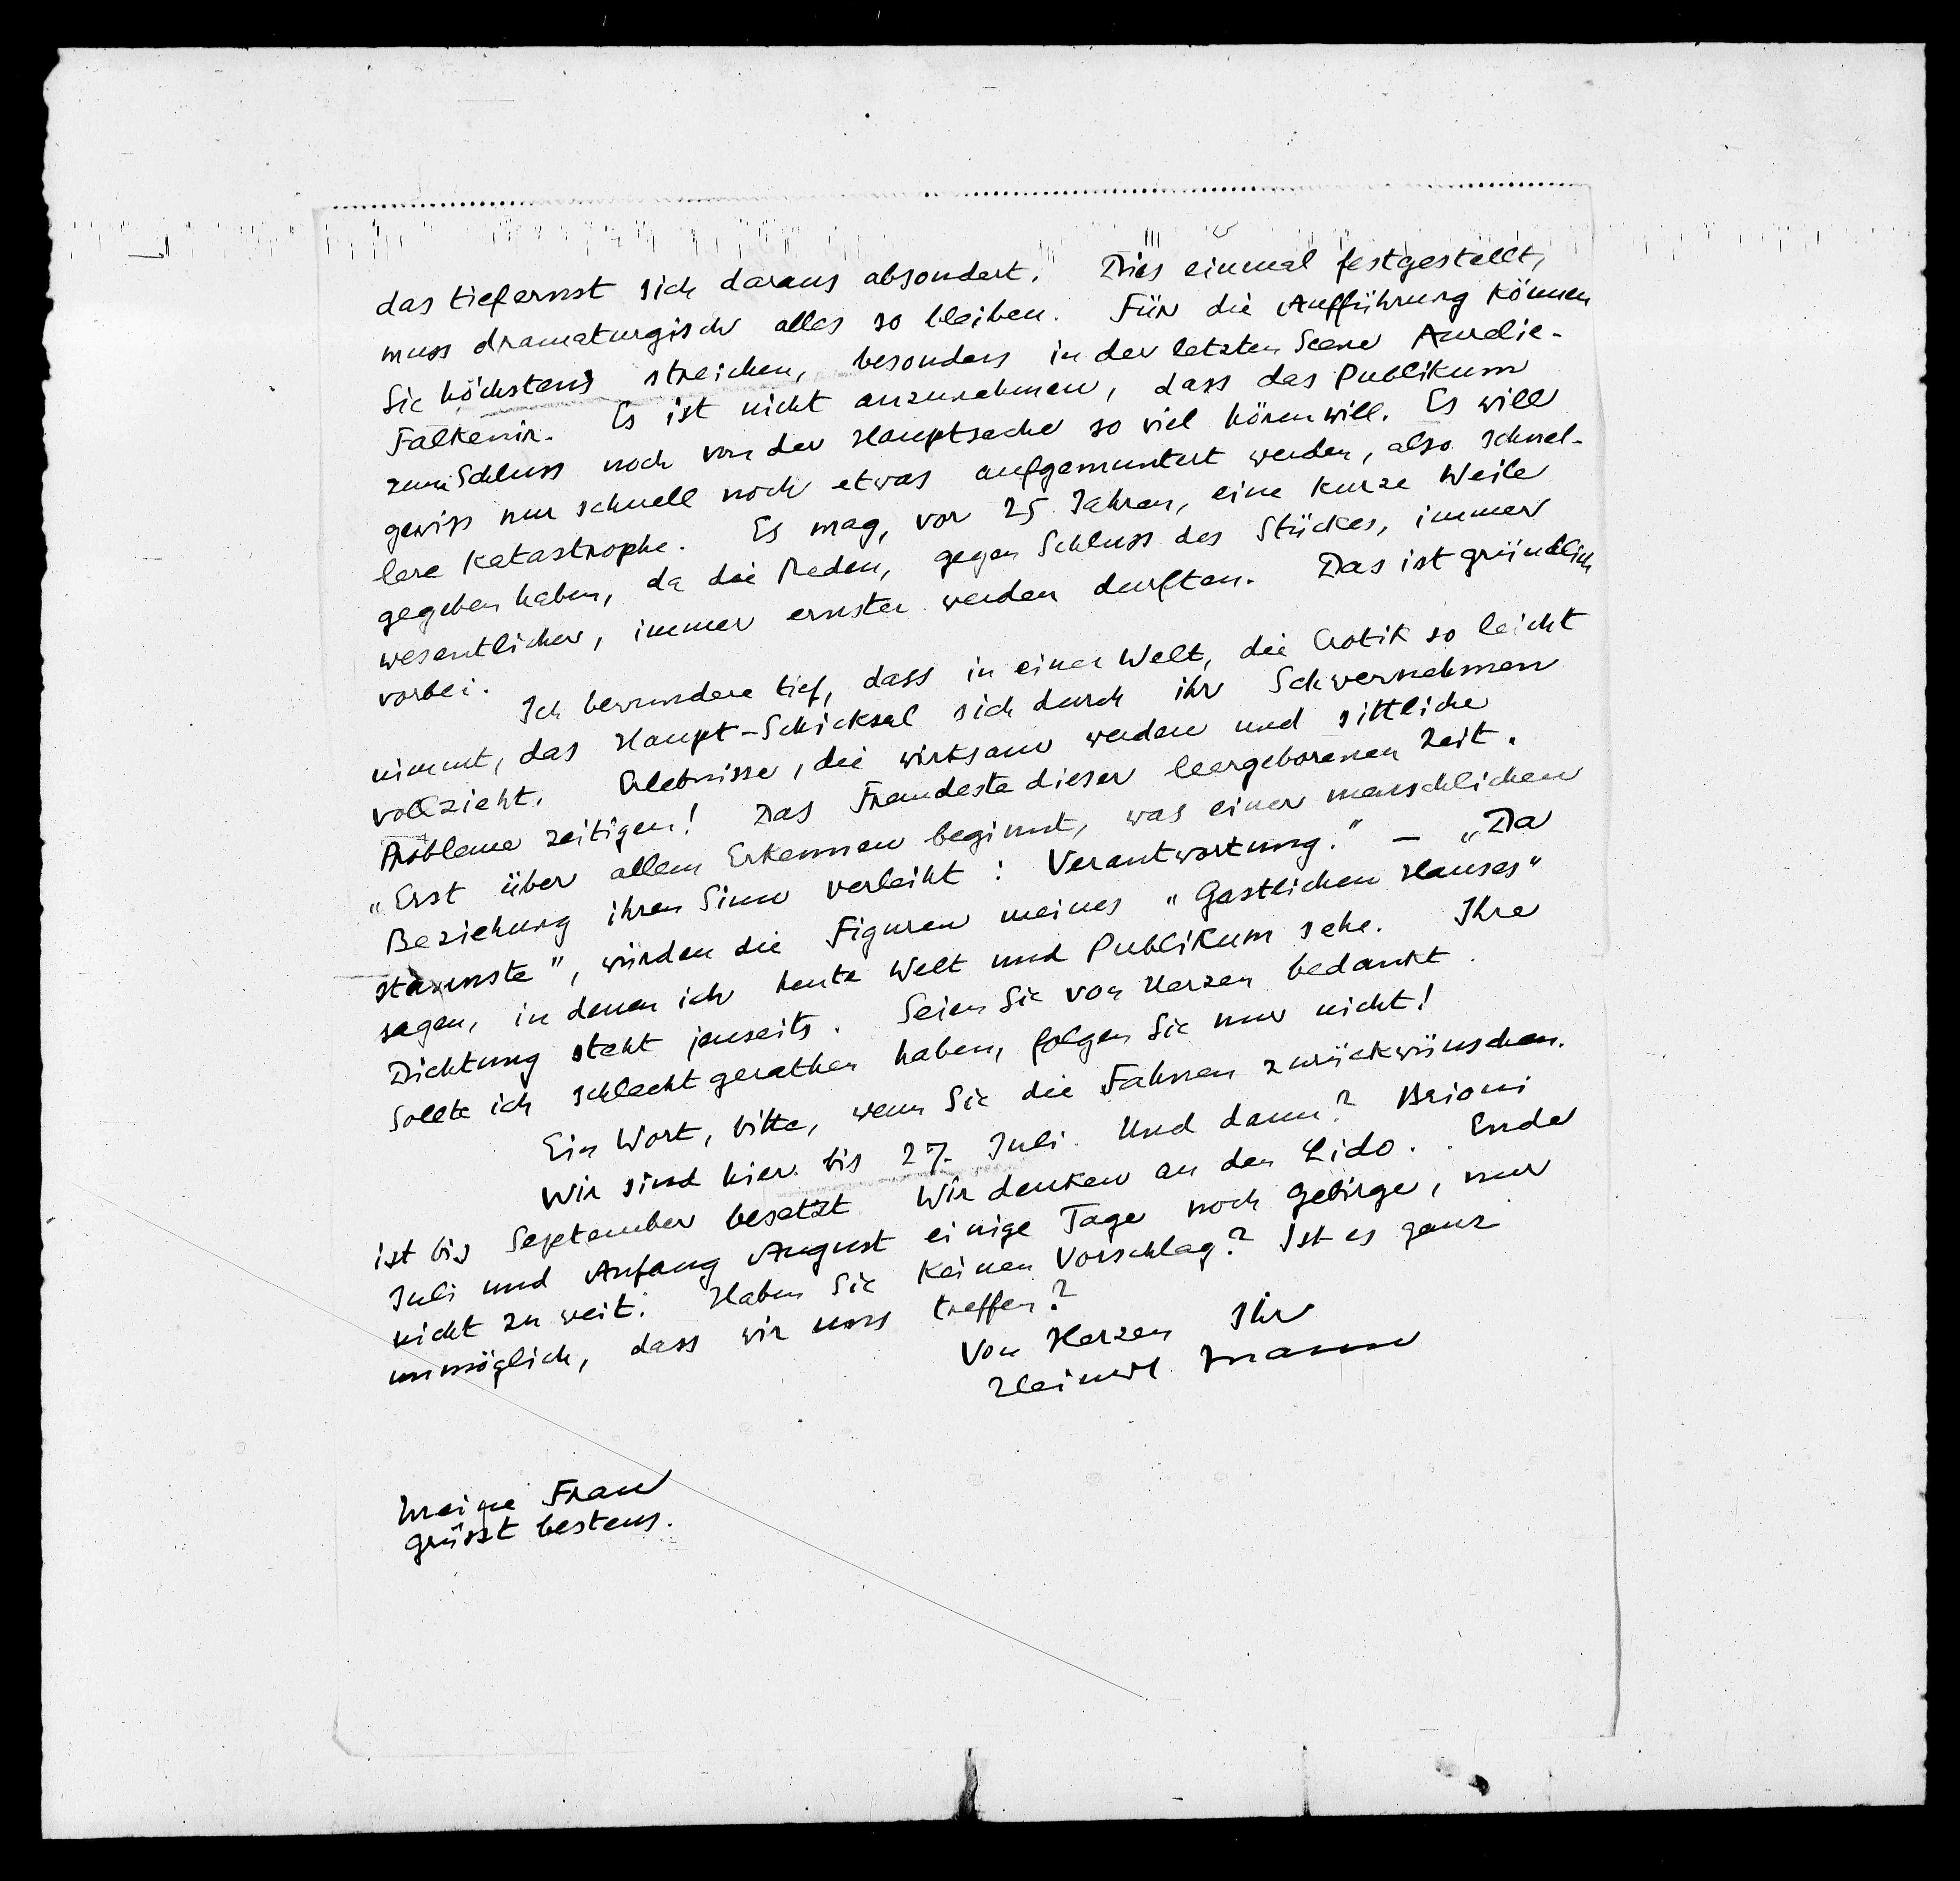 das tiefernst sich daraus absondert. Dies einmal festgestellt,
muss dramaturgisch alles so bleiben. Für die Aufführung können
Sie höchstens streichen, besonders in der letzten Scene Aurelie-
Falkenir. Es ist nicht anzunehmen, dass das Publikum
zum Schluss noch von der Hauptsache so viel hören will. Es will
gewiss nur schnell noch etwas aufgemuntert werden, also schnel-
lere Katastrophe. Es mag, vor 25 Jahren, eine kurze Weile
gegeben haben, da die Reden, gegen Schluss des Stückes, immer
wesentlicher, immer ernster werden durften. Das ist gründlich
vorbei.
Ich bewundere tief, dass in einer Welt, die Erotik so leicht
nimmt, das Haupt-Schicksal sich durch ihr Schwernehmen
vollzieht. Erlebnisse, die wirksam werden und sittliche
Probleme zeitigen! Das Fremdeste dieser leergeborenen Zeit.
„Erst über allem Erkennen beginnt, was einer menschlichen
Beziehung ihren Sinn verleiht: Verantwortung." – „Da
staunste", würden die Figuren meines „Gastlichen Hauses"
sagen, in denen ich heute Welt und Publikum sehe. Ihre
Dichtung steht jenseits. Seien Sie von Herzen bedankt.
Sollte ich schlecht gerathen haben, folgen Sie nur nicht!
Ein Wort, bitte, wenn Sie die Fahnen zurückwünschen.
Wir sind hier bis 27. Juli. Und dann? Brioni
ist bis September besetzt. Wir denken an den Lido. Ende
Juli und Anfang August einige Tage noch Gebirge, nur
nicht zu weit. Haben Sie keinen Vorschlag? Ist es ganz
unmöglich, dass wir uns treffen?
Von Herzen Ihr
Heinrich Mann
Meine Frau
grüsst bestens.